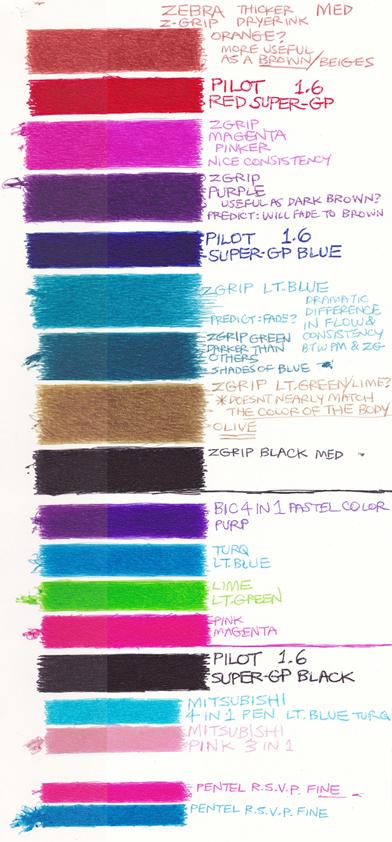 ZEBRA THICKER MED
Z-GRIP DRYER INK
ORANGE?
MORE USEFUL
AS A BROWN/BEIGES
PILOT 1.6
RED SUPER-GP
ZGRIP
MAGENTA
PINKER
NICE CONSISTENCY
ZGRIP
PURPLE
USEFUL AS DARK BROWN?
PREDICT: WILL FADE TO BROWN
PILOT 1.6
SUPER-GP BLUE
ZGRIP LT.BLUE
PREDICT: FADE?
DRAMATIC
DIFFERENCE
IN FLOW &
CONSISTENCY
BTW PM & ZG
ZGRIP GREEN
DARKER THAN
OTHERS
SHADES OF BLUE
ZGRIP LT.GREEN/LIME?
*DOESNT NEARLY MATCH
THE COLOR OF THE BODY
OLIVE
ZGRIP BLACK MED
BIC 4 IN 1 PASTEL COLOR
PURP
TURQ
LT.BLUE
LIME
LT.GREEN
PINK
MAGENTA
PILOT 1.6
SUPER-GP BLACK
MITSUBISHI
4 IN 1 PEN LT. BLUE TURQ
MITSUBISHI
PINK 3 IN 1
PENTEL R.S.V.P. FINE
PENTEL R.S.V.P. FINE